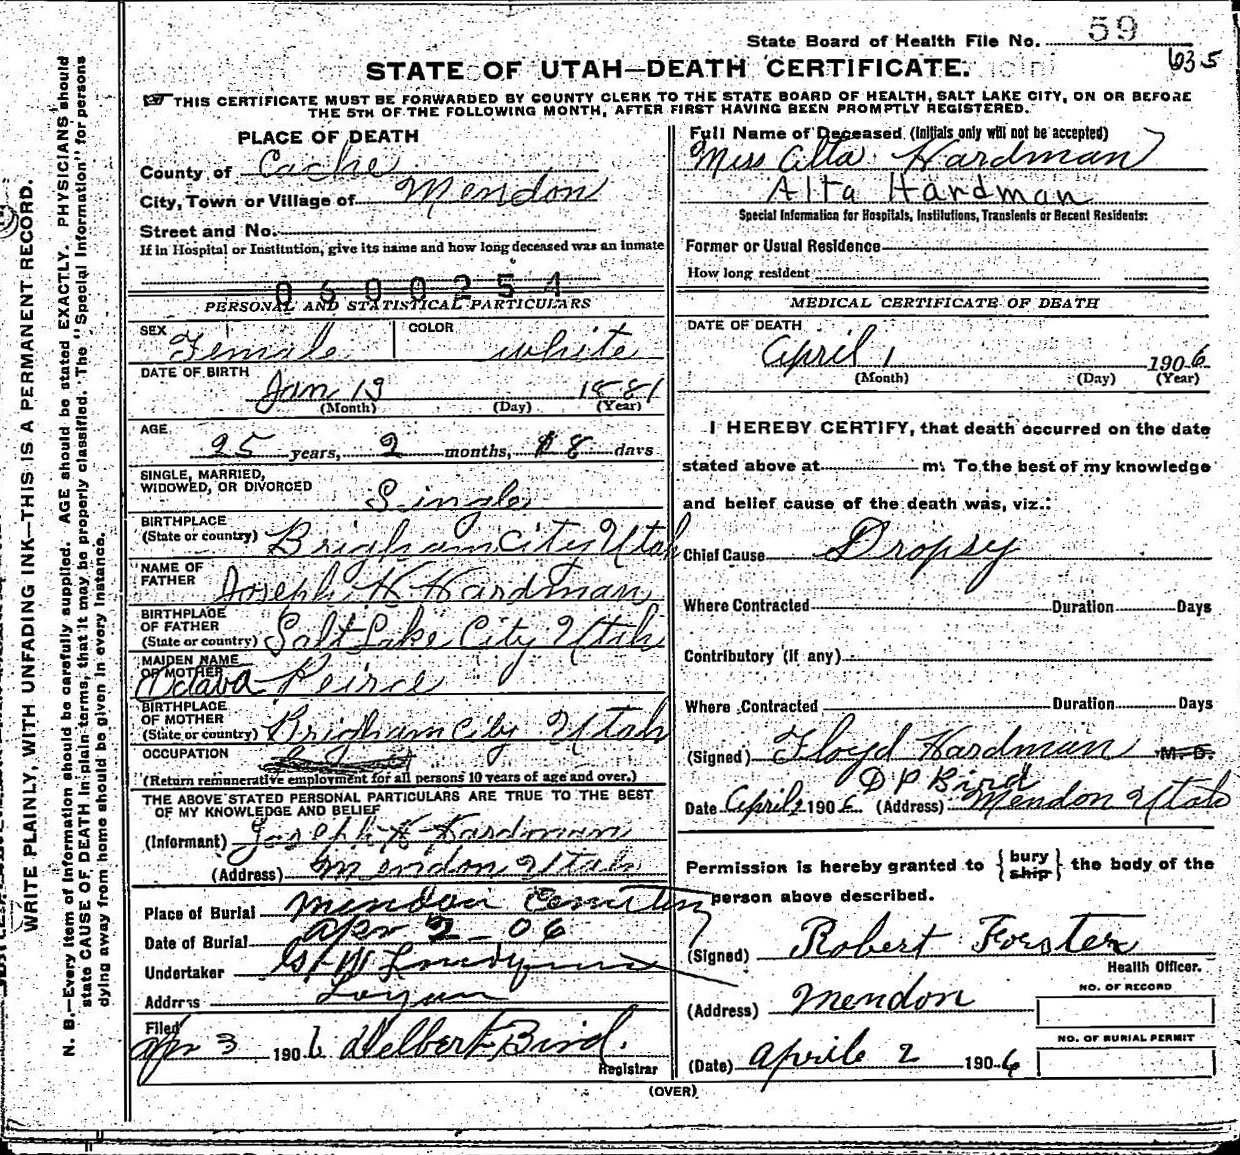 State Board of Health File No. 59
635
STATE OF UTAH—DEATH CERTIFICATE.
THIS CERTIFICATE MUST BE FORWARDED BY COUNTY CLERK TO THE STATE BOARD OF HEALTH, SALT LAKE CITY, ON OR BEFORE
THE 5TH OF THE FOLLOWING MONTH, AFTER FIRST HAVING BEEN PROMPTLY REGISTERED.
PLACE OF DEATH
County of Cache
City, Town or Village of Mendon
Street and No.
If in Hospital or Institution, give its name and how long deceased was an inmate
0600254
PERSONAL AND STATISTICAL PARTICULARS
SEX Female COLOR white
DATE OF BIRTH Jan 13 1881
(Month) (Day) (Year)
AGE
25 years, 2 months, 8 days
SINGLE, MARRIED,
WIDOWED, OR DIVORCED Single
BIRTHPLACE
(State or country) Brigham City Utah
NAME OF
FATHER Joseph H Hardman
BIRTHPLACE
OF FATHER
(State or country) Salt Lake City Utah
MAIDEN NAME
OF MOTHER Octava Peirce
BIRTHPLACE
OF MOTHER
(State or country) Brigham City Utah
OCCUPATION
(Return remunerative employment for all persons 10 years of age and over.)
THE ABOVE STATED PERSONAL PARTICULARS ARE TRUE TO THE BEST
OF MY KNOWLEDGE AND BELIEF
(Informant) Joseph H Hardman
(Address) Mendon Utah
Place of Burial Mendon Cemetery
Date of Burial Apr 2 - 06
Undertaker
Address Logan
Filed
Apr 3 1906 Delbert Bird.
Registrar
Full Name of Deceased (Initials only will not be accepted)
Miss Alta Hardman
Alta Hardman
Special Information for Hospitals, Institutions, Transients or Recent Residents:
Former or Usual Residence
How long resident
MEDICAL CERTIFICATE OF DEATH
DATE OF DEATH
April 1 1906
(Month) (Day) (Year)
I HEREBY CERTIFY, that death occurred on the date
stated above at m. To the best of my knowledge
and belief cause of the death was, viz.:
Chief Cause Dropsy
Where Contracted Duration Days
Contributory (if any)
Where Contracted Duration Days
(Signed) Floyd Hardman M. D.
D P Bird
Date April 2 1906 (Address) Mendon Utah
Permission is hereby granted to { bury ship } the body of the
person above described.
(Signed) Robert Forster
Health Officer.
(Address) Mendon
NO. OF RECORD
NO. OF BURIAL PERMIT
(Date) Aprile 2 1906
(OVER)
WRITE PLAINLY, WITH UNFADING INK—THIS IS A PERMANENT RECORD.
N. B.—Every item of information should be carefully supplied. AGE should be stated EXACTLY. PHYSICIANS should
state CAUSE OF DEATH in plain terms, that it may be properly classified. The "Special Information" for persons
dying away from home should be given in every instance.